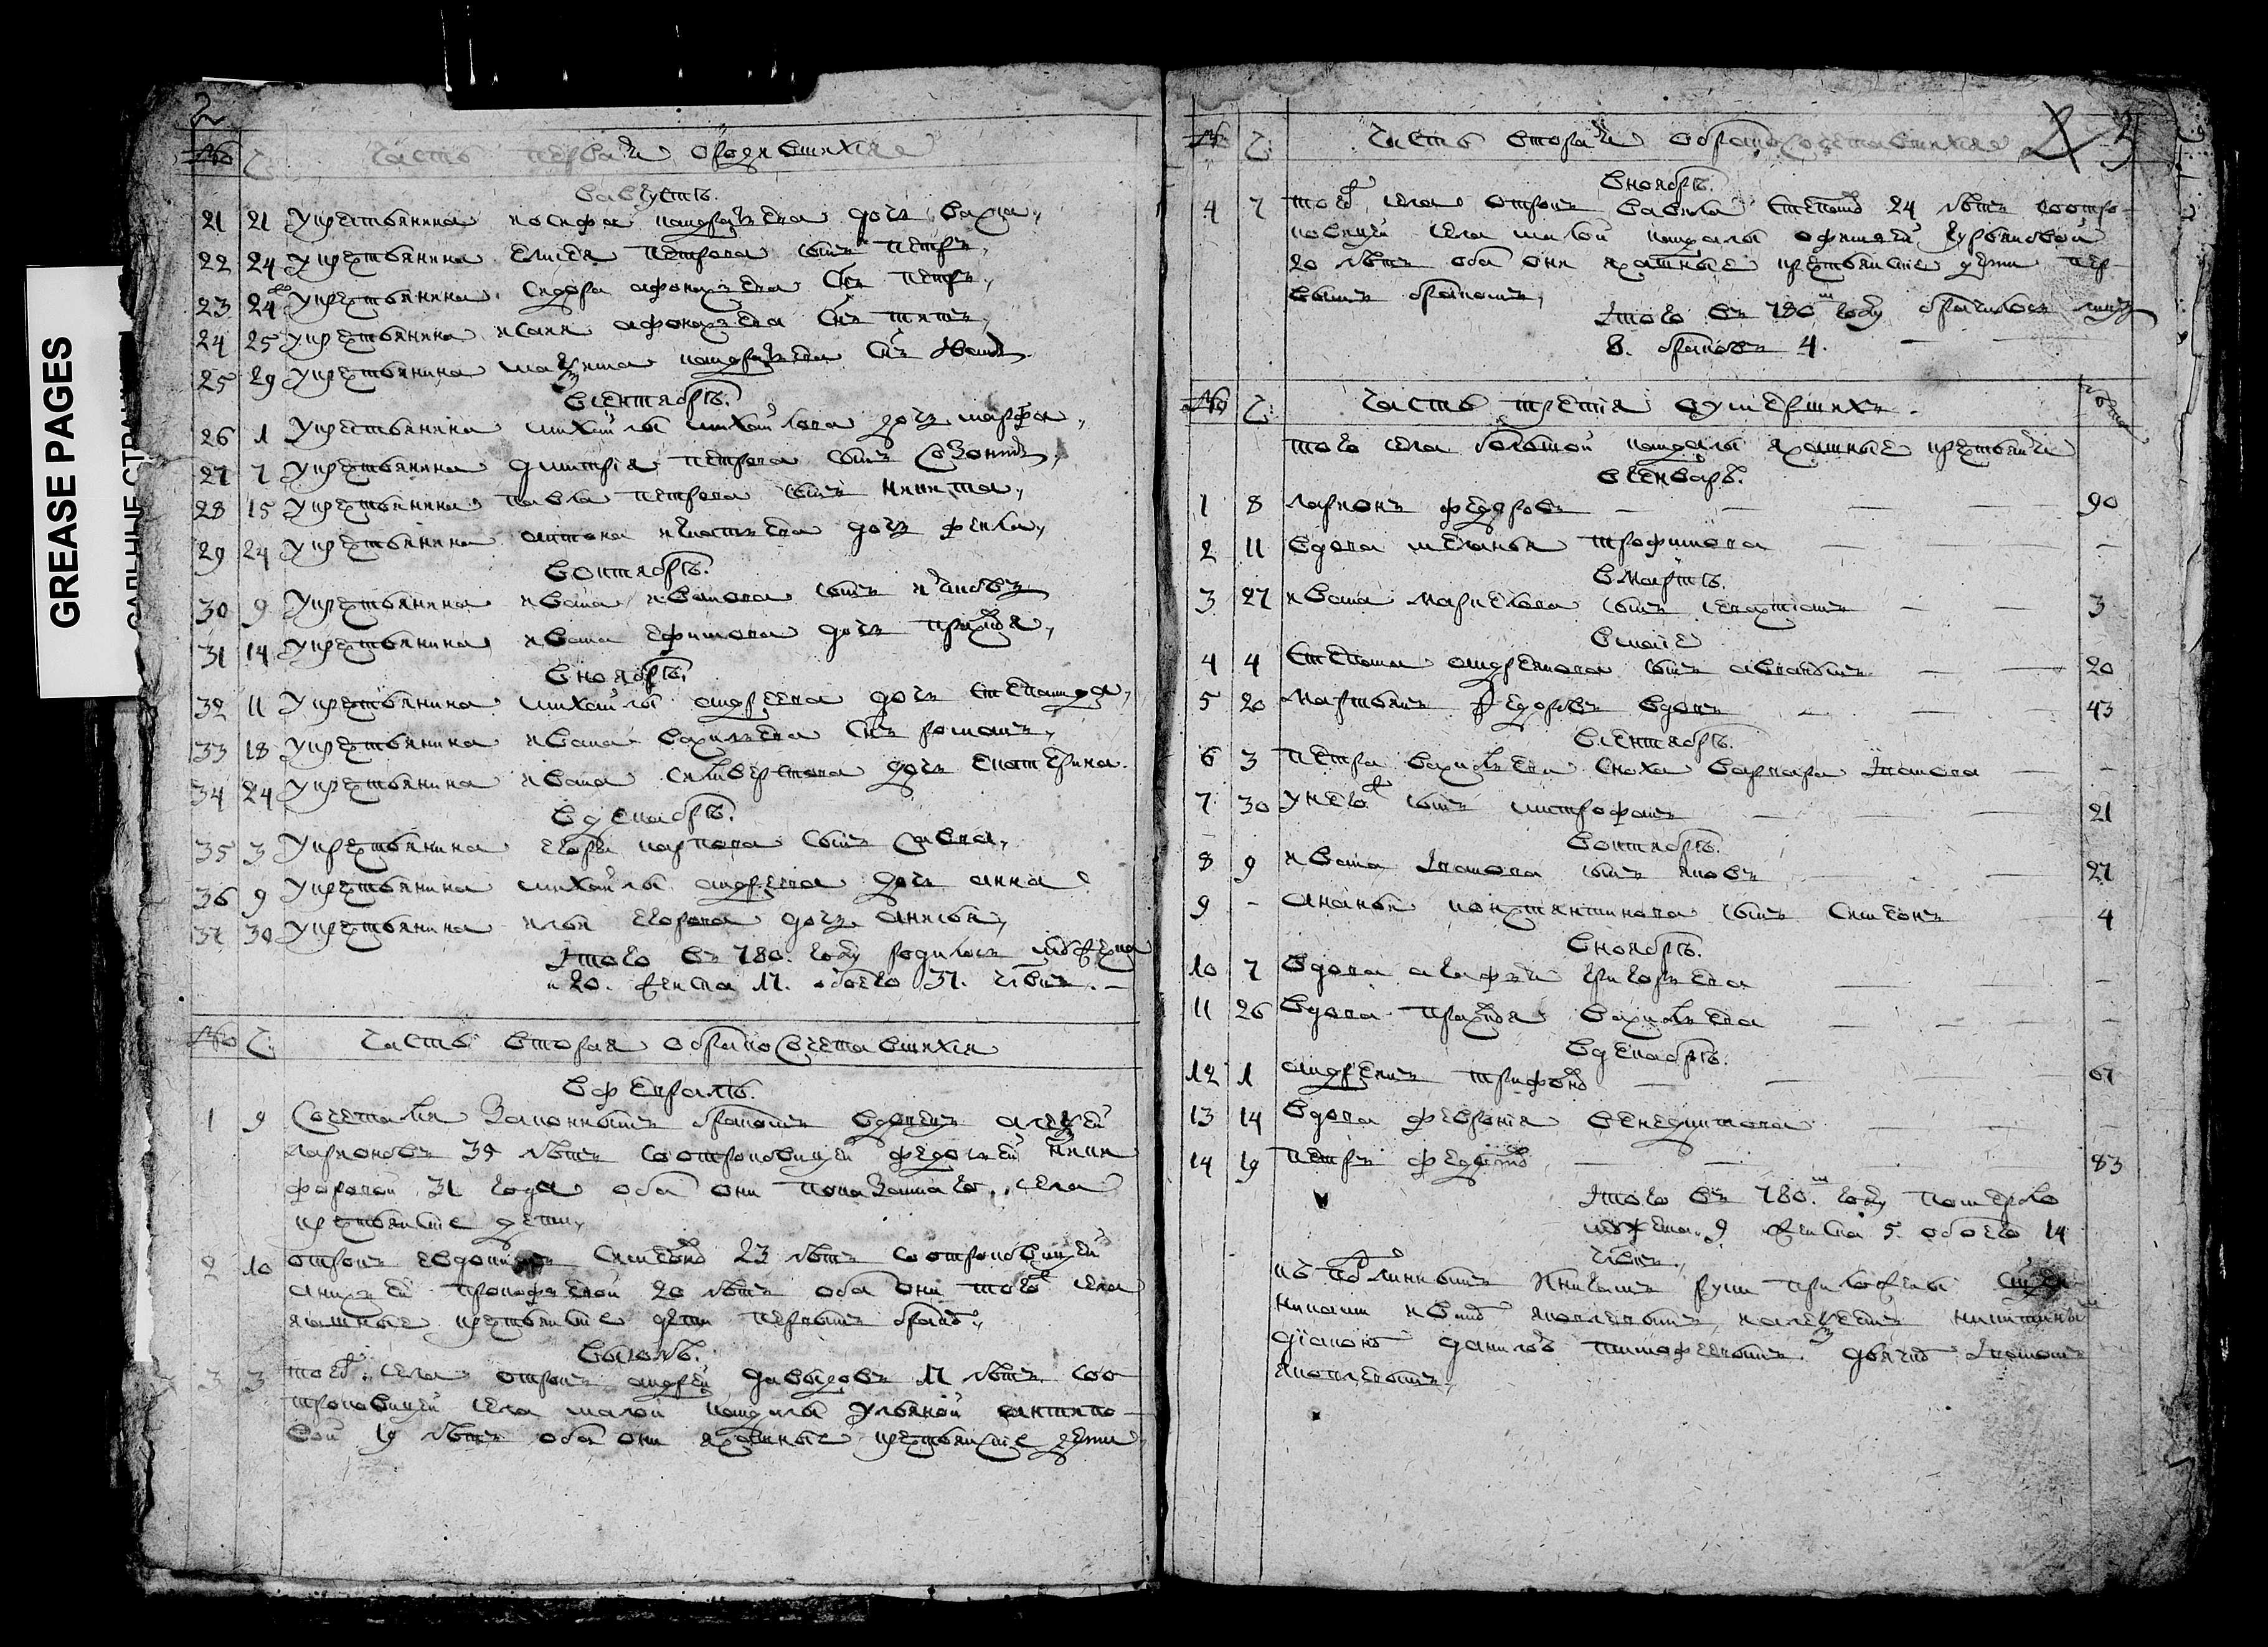 GREASE PAGES
2
№ Ч: Часть первая ородившихся
Вавгусте.
21 21 Укрестьянина иосифа кондратьева дочь васса,
22 24 Укрестьянина елисея петрова сынъ петръ,
23 24 Укрестьянина сидора афонасьева снъ петръ,
24 25 Укрестьянина исаия афонасьева снъ титъ,
25 29 Укрестьянина максима кондратьева снъ иванъ
Всентябрѣ.
26 1 Укрестьянина михаилы михаилова дочь марфа,
27 7 Укрестьянина дмитрія петрова сынъ созонтъ,
28 15 Укрестьянина павла петрова сынъ никита,
29 24 Укрестьянина антона игнатьева дочь фекла,
Воктябрѣ.
30 9 Укрестьянина ивана иванова сынъ иаковъ
31 14 Укрестьянина ивана ефимова дочь
Вноябрѣ.
32 11 Укрестьянина михаилы андреева дочь степанида,
33 18 Укрестьянина ивана васильева снъ романъ,
34 24 Укрестьянина ивана силиверстова дочь екатерина.
Вдекабрѣ.
35 3 Укрестьянина егора карпова сынъ савва,
36 9 Укрестьянина михаилы андреева дочь анна
37 30 Укрестьянина ильи егорова дочь анисья,
Итого въ 780. году родилось мужеска
20. женска 17. обоего 37. члвкъ.
№ Ч: Часть вторая обракосочетавшихся
Вфевралѣ.
1 9 Сочетался законнымъ бракомъ вдовецъ алексѣй
ларионовъ 35 лѣтъ соотроковицей федосьей ники
форовой 31 года оба они показаннаго села
крестьянскіе дети,
2 10 отрокъ евдокимъ симеоновъ 23 лѣтъ соотроковицей
анисьей прокофьевой 20 лѣтъ оба они того села
ясашные крестьянскіе дети первымъ бракомъ,
Виюлѣ.
3 3 тогожъ села отрокъ андрей давыдовъ 17 лѣтъ соо
троковицей села малой кандалы ульяной антипо
вой 19 лѣтъ оба они ясашные крестьянскіе дети,
3
№ Ч: Часть вторая обракосочетавшихся
Вноябрѣ.
4 7 тогожъ села отрокъ вавила степановъ 24 лѣтъ соотро
ковицей села малой кандалы офимьей
20 лѣтъ оба они ясашные крестьянскіе дети пер
вымъ бракомъ,
Итого въ 780м году
8. браковъ 4.
№ Ч: Часть третія оумершихъ. лѣта
того села большой кандалы ясашные крестьяня
Вгенварѣ.
1 8 ларионъ федоровъ — 90
2 11 вдова меланья трофимова — -
Вмартѣ.
3 27 ивана маркелова сынъ севастиянъ — 3
Вмаіе
4 4 Степана андреянова сынъ — 20
5 20 Мартынъ федоровъ вдовъ — 43
Всентябрѣ.
6 3 Петра васильева сноха варвара — -
7 30 Унегожъ сынъ митрофанъ — 21
Воктябрѣ.
8 9 ивана сынъ яковъ — 27
9 - Ананьи констянтинова сынъ симеонъ 4
Вноябрѣ.
10 7 Вдова агафья григорьева — -
11 26 Вдова васильева — -
Вдекабрѣ.
12 1 андреянъ трифоновъ — 67
13 14 Вдова февронія венедиктова — -
14 19 Петръ — 83
Итого въ 780.м году померло
мужеска. 9 женска 5. обоего 14
члвкъ,
къ подлиннымъ книгамъ руки приложены
діаконъ данилъ тимофеевымъ. дьячкъ
яковлевымъ,